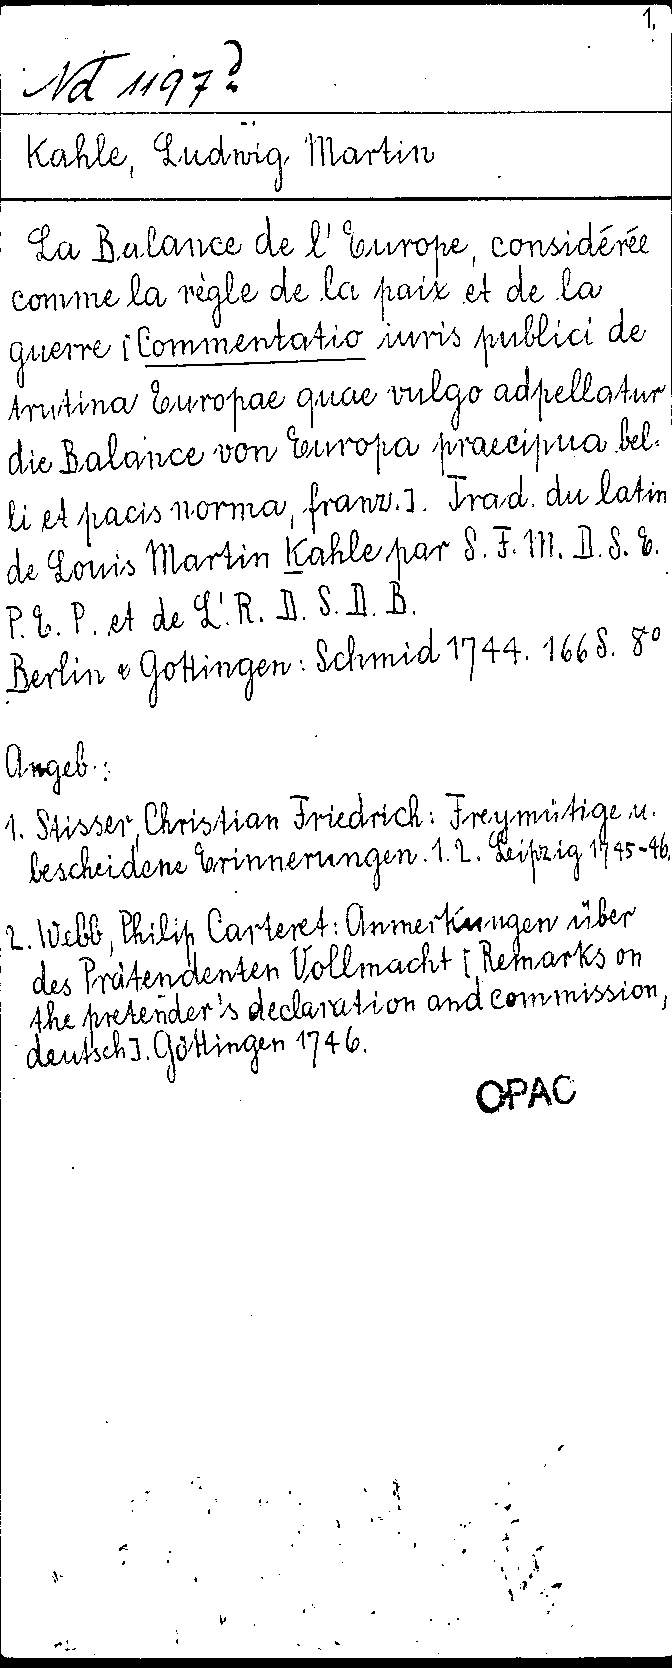 1.
Nd 1197?
Kahle, Ludwig Martin
La Balance de l'Europe, considérée
comme la règle de la paix et de la
guerre [Commentatio iuris publici de
trutina Europae quae vulgo adpellatur
die Balance von Europa praecipua bel-
li et pacis norma, franz.]. Trad. du latin
de Louis Martin Kahle par S. F. M. D. S. E.
P. E. P. et de L'. R. D. S. D. B.
Berlin & Gottingen: Schmid 1744. 166 S. 8°
Angeb.:
1. Stisser, Christian Friedrich: Freymütige u.
bescheidene Erinnerungen. 1. 2. Leipzig 1745-46.
2. Webb, Philip Carteret: Anmerkungen über
des Prätendenten Vollmacht [Remarks on
the pretender's declaration and commission,
deutsch]. Göttingen 1746.
OPAC